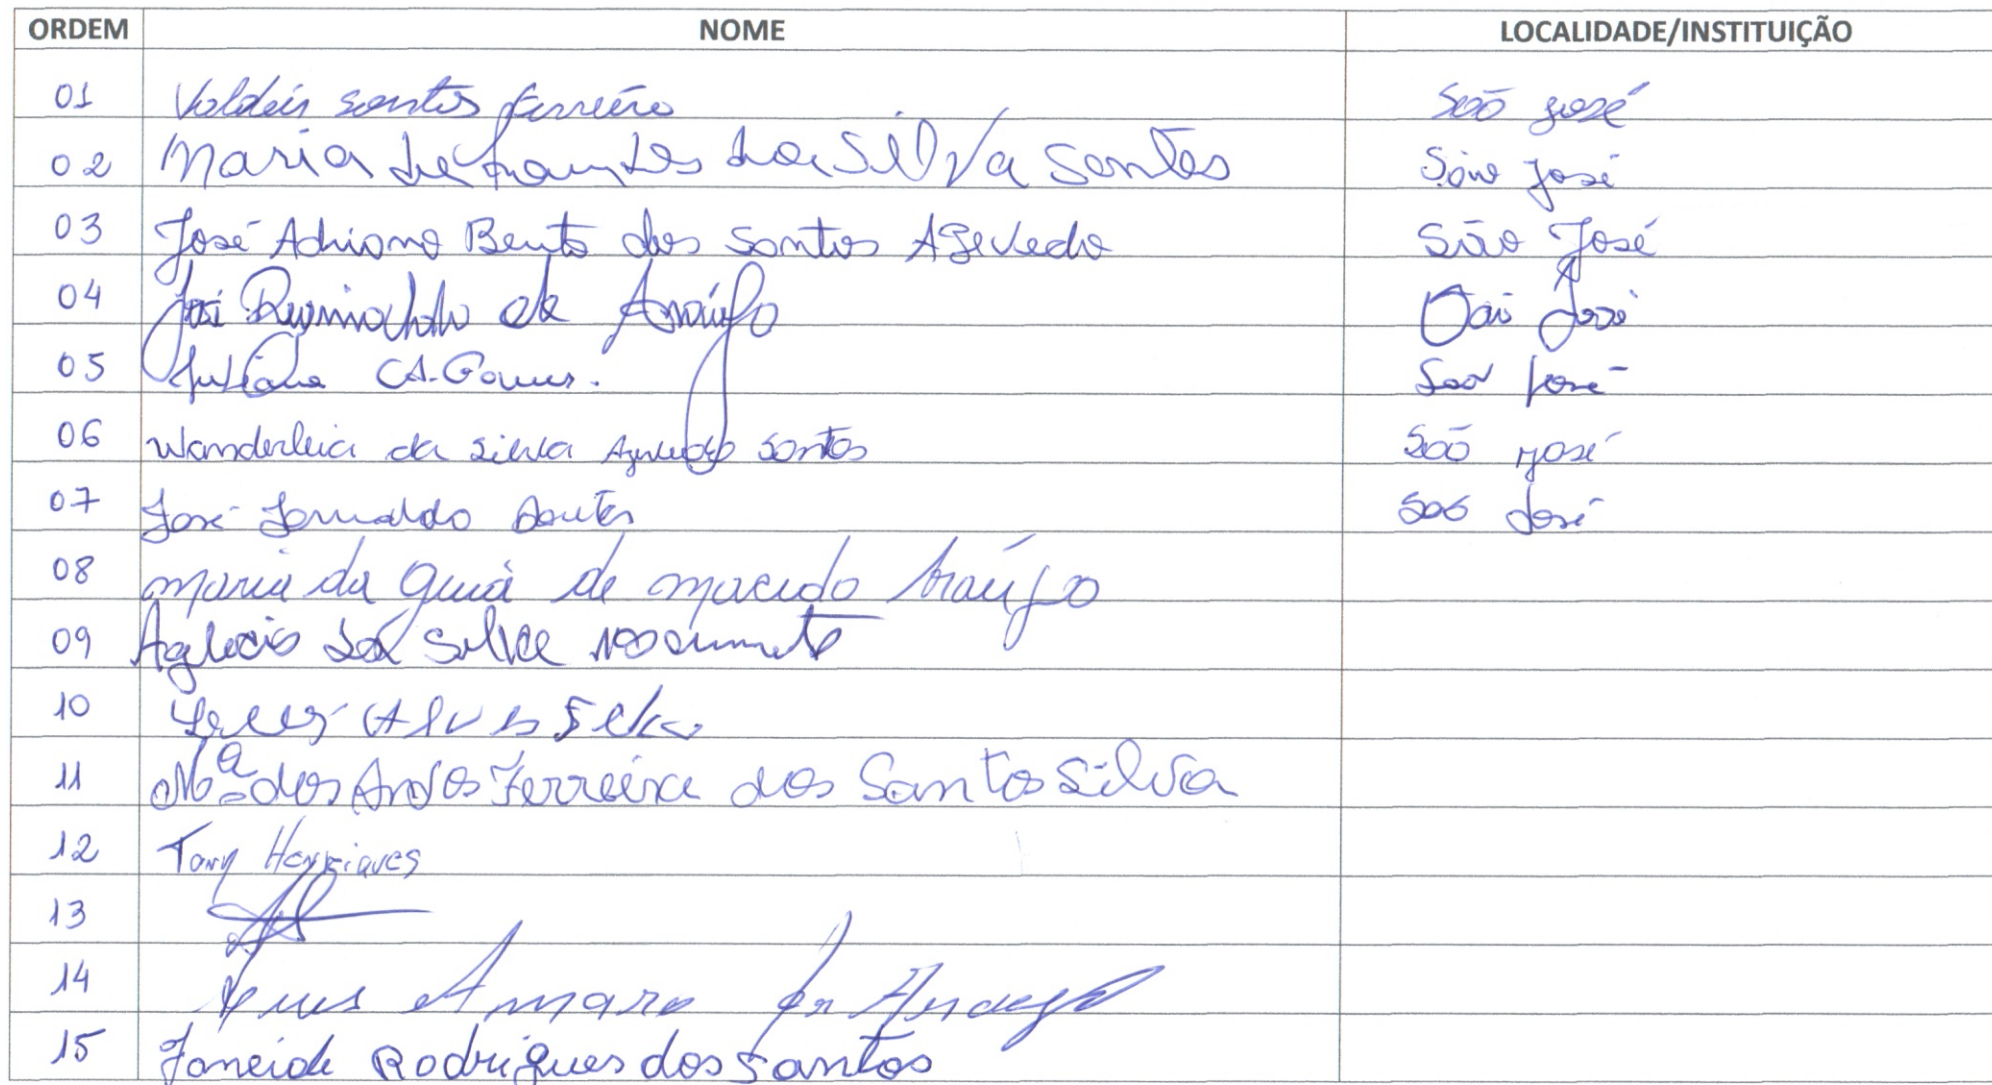 ORDEM NOME LOCALIDADE/INSTITUIÇÃO
01 Valdeir santos ferreira São José
02 Maria de Lourdes da Silva Santos São José
03 José Adriano Bento dos Santos Azevedo São José
04 José de Araújo São José
05 Juliana C.A. Gomes. São José
06 Wanderleia da silva Azevedo santos São José
07 José Santos São José
08 maria da guia de macedo Araújo
09 da Silva
10
11 Mª dos Anjos Ferreira dos Santos Silva
12 Tony Henriques
13
14 Amaro
15 Janeide Rodrigues dos Santos